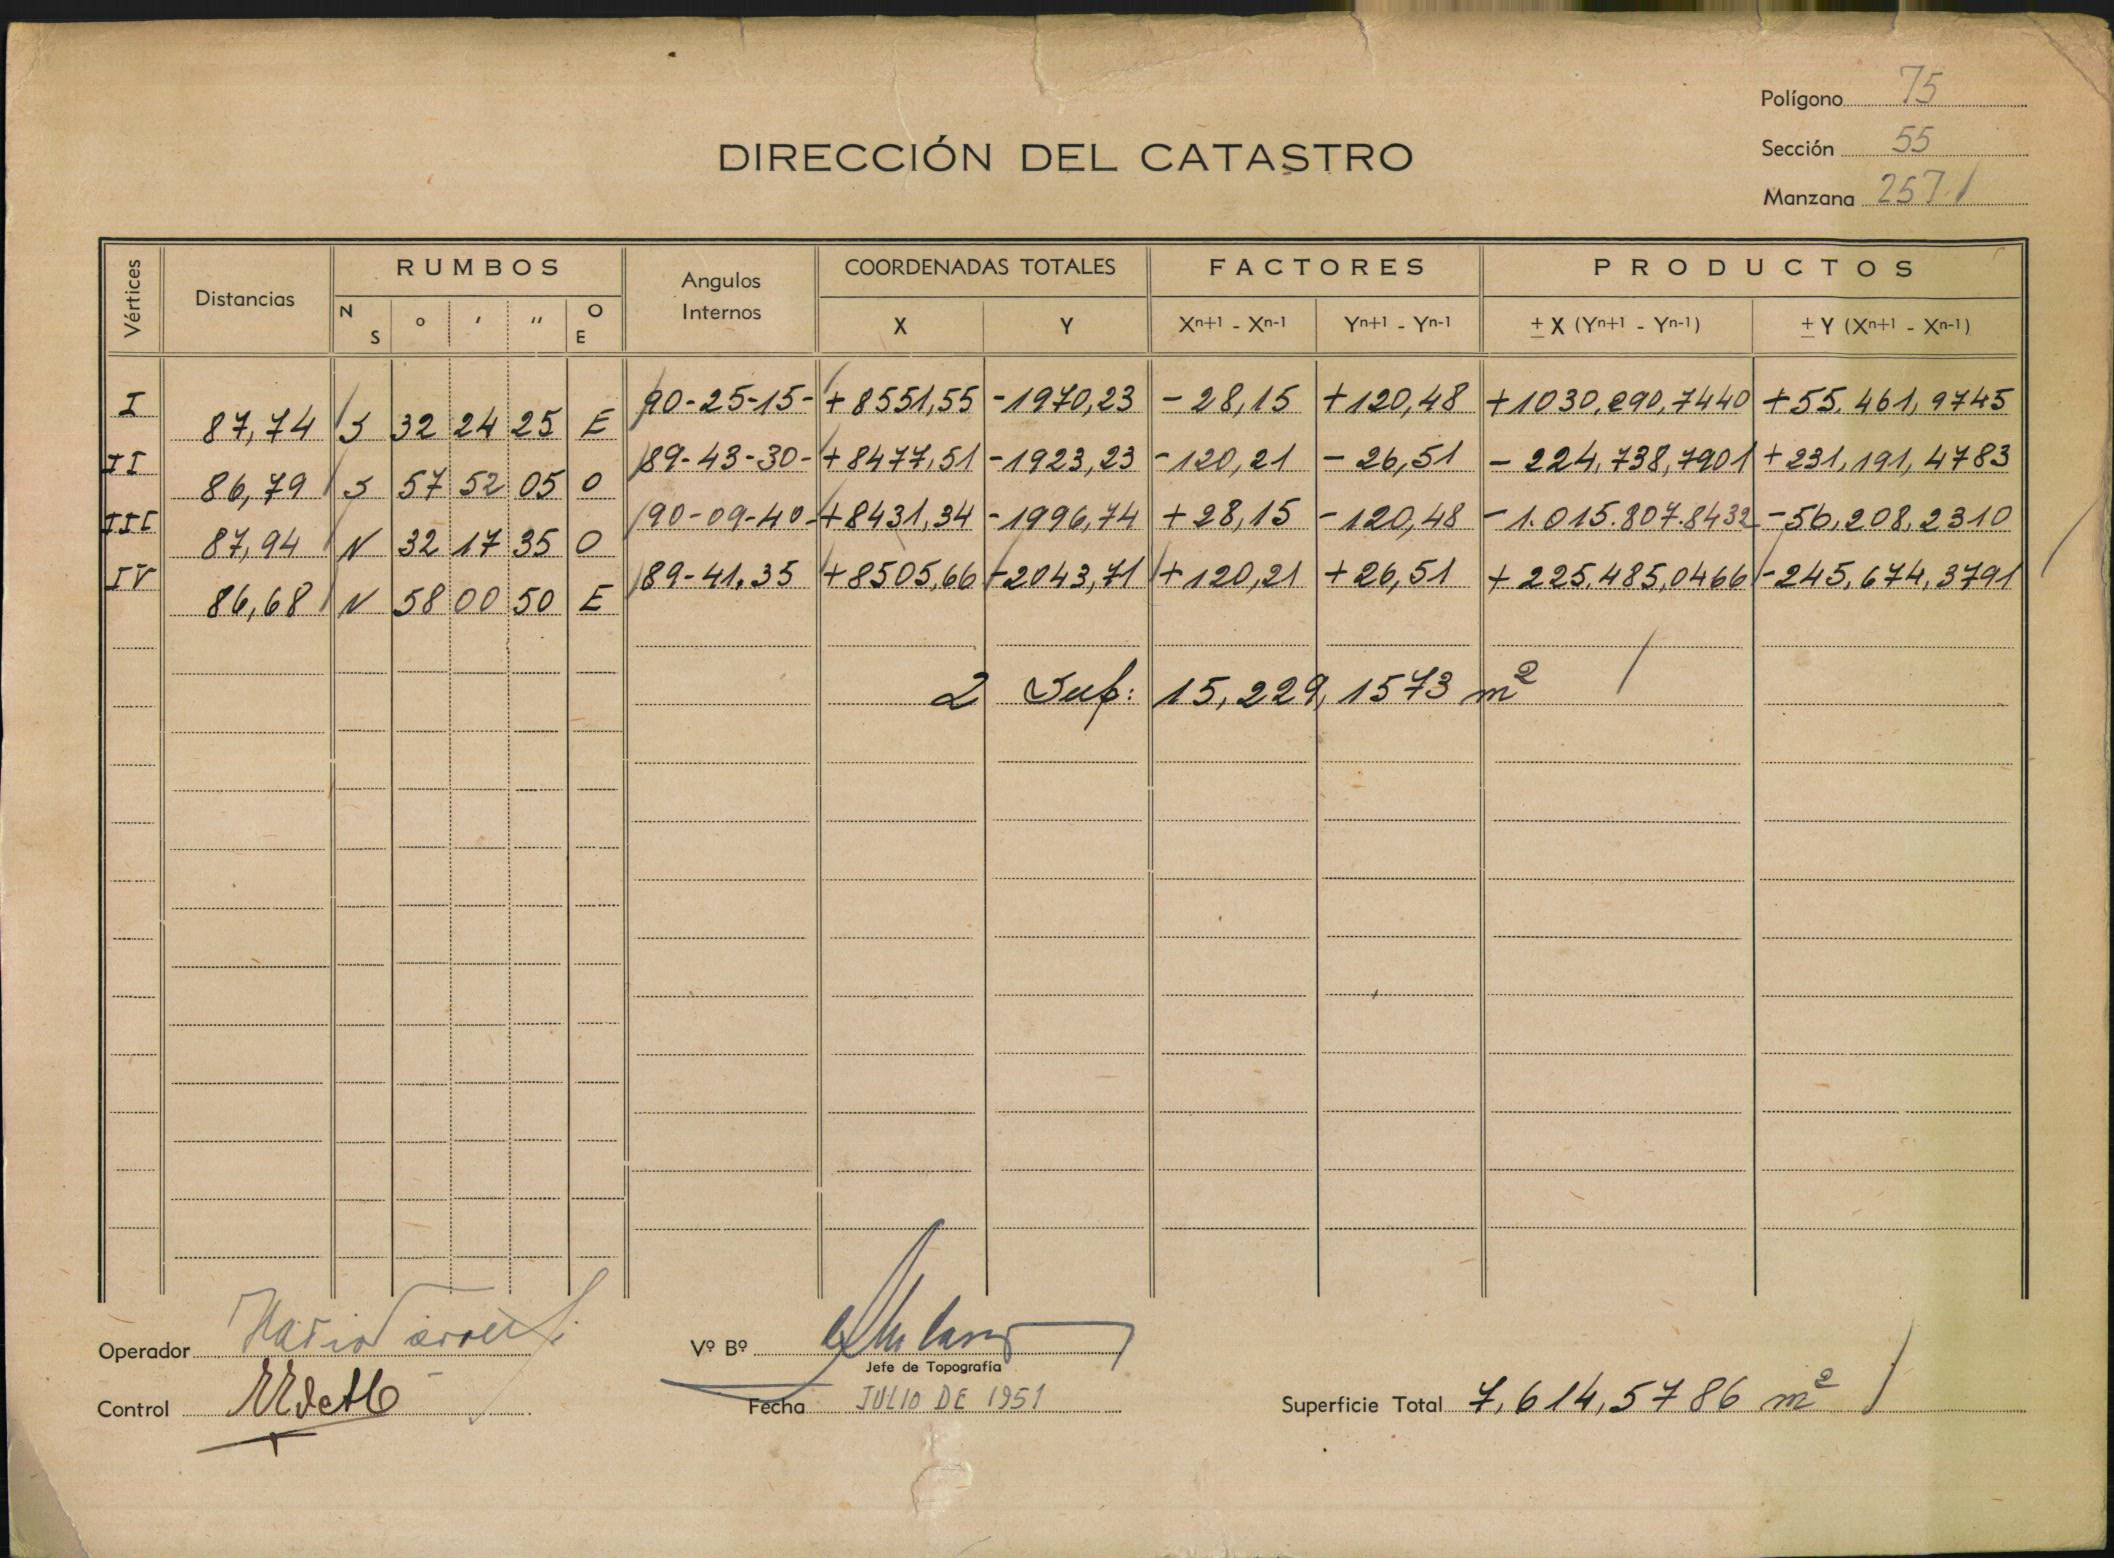 Polígono 75
Sección 55
Manzana 2571
DIRECCIÓN DEL CATASTRO
Vértices Distancias RUMBOS Angulos Internos COORDENADAS TOTALES FACTORES PRODUCTOS
N S ° ' '' O E X Y Xn+1 - Xn-1 Yn+1 - Yn-1 ± X (Yn+1 - Yn-1) ± Y (Xn+1 - Xn-1)
I 90-25-15- +8551,55 -1970,23 -28,15 +120,48 +1030.290,7440 +55.461,9745
87,74 S 32 24 25 E
II 89-43-30- +8477,51 -1923,23 -120,21 -26,51 -224.738,7901 +231,191,4783
86,79 S 57 52 05 O
III 90-09-40- +8431,34 -1996,74 +28,15 -120,48 -1.015.807.8432 -56,208,2310
87,94 N 32 17 35 O
IV 89-41.35 +8505,66 -2043,71 +120,21 +26,51 +225.485,0466 -245,674,3791
86,68 N 58 00 50 E
2 Sup: 15,229,1573 m²
Operador Vº Bº
Jefe de Topografía
Control Fecha JULIO DE 1951 Superficie Total 7,614,5786 m²